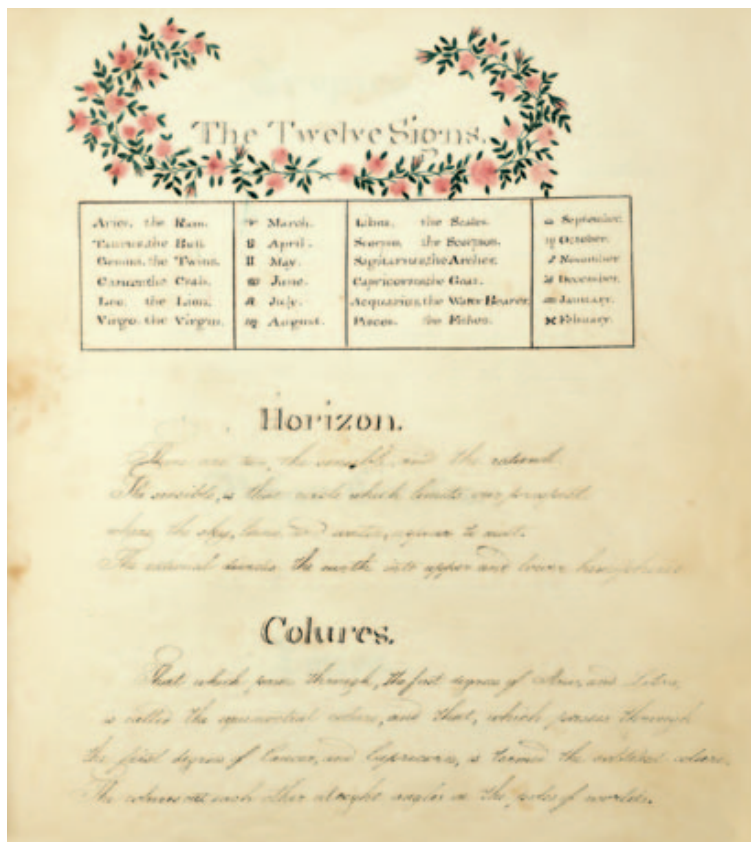 The Twelve Signs.
Aries, the Ram. ♈ March. Libra, the Scales. ♎ September.
Taurus, the Bull. ♉ April. Scorpio, the Scorpion. ♏ October.
Gemini, the Twins. ♊ May. Sagitarius, the Archer. ♐ November
the Crab. ♋ June. Capricornus, the Goat. ♑ December.
Leo, the Lion. ♌ July. Acquarius, the Water Bearer. ♒ January.
Virgo, the Virgin. ♍ August. Pisces. the Fishes. ♓
Horizon.
There are two, the sensible, and the rational.
The sensible, is that circle which limits our prospect
where the sky, land, and water, appear to meet.
The rational divides the earth into upper and lower hemispheres
Colures.
That which pass through, the first degree of Aries, and Libra,
is called the equinoctial colure, and that, which passes through
the first degree of Cancer, and Capricorn, is termed the colure.
The colures each other at right angles in the poles of